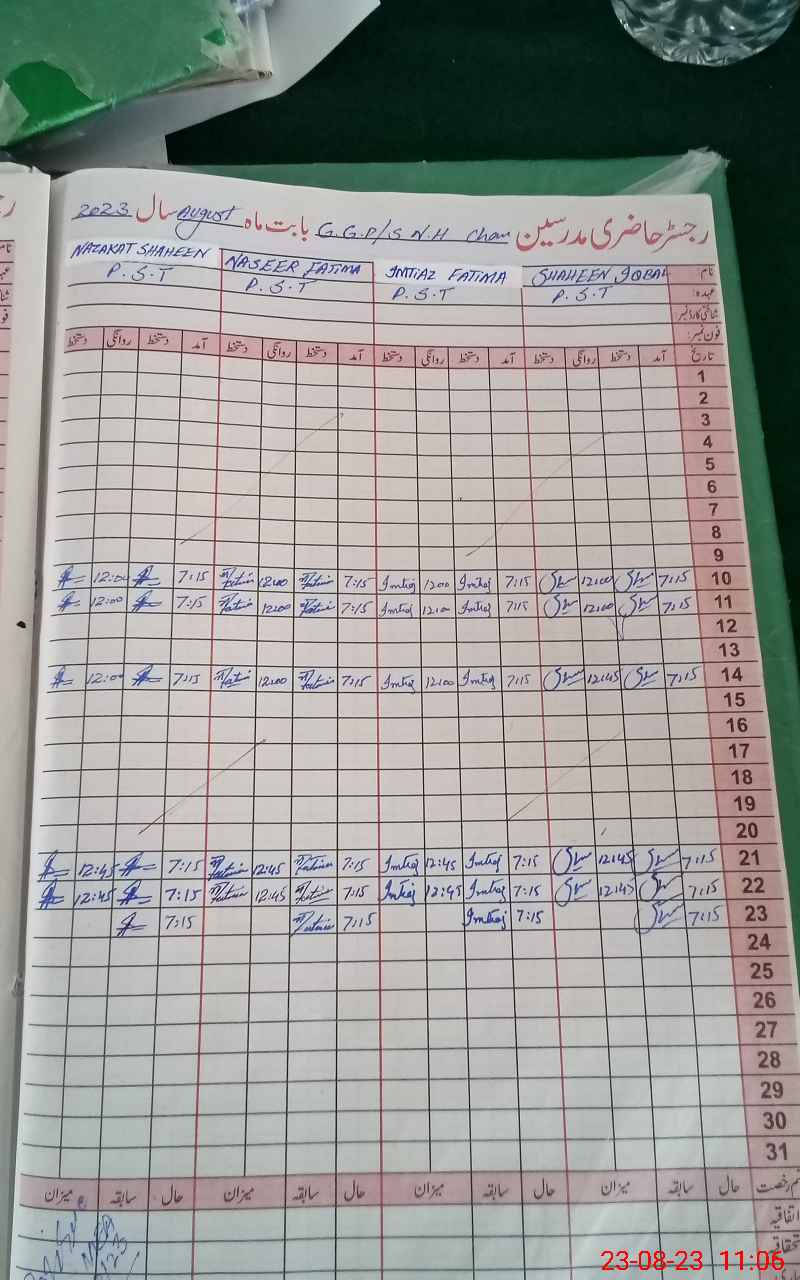 رجسٹر حاضری مدرسین G.G.P/S N.H Chan بابت ماہ August سال 2023
نام: SHAHEEN IQBAL IMTIAZ FATIMA NASEER FATIMA NAZAKAT SHAHEEN
عہدہ: P.S.T P.S.T P.S.T P.S.T
شناختی کارڈ نمبر
فون نمبر:
تاریخ آمد دستخط روانگی دستخط آمد دستخط روانگی دستخط آمد دستخط روانگی دستخط آمد دستخط روانگی دستخط
1
2
3
4
5
6
7
8
9
10 7:15 12:00 7:15 Imtiaz 1200 Imtiaz 7:15 Fatima 12:00 Fatima 7:15 12:00
11 7:15 12:00 7:15 Imtiaz 12:00 Imtiaz 7:15 Fatima 12:00 Fatima 7:15 12:00
12
13
14 7:15 12:45 7:15 Imtiaz 12:00 Imtiaz 7:15 Fatima 12:00 Fatima 7:15 12:00
15
16
17
18
19
20
21 7:15 12:45 7:15 Imtiaz 12:45 Imtiaz 7:15 Fatima 12:45 Fatima 7:15 12:45
22 7:15 12:45 7:15 Imtiaz 12:45 Imtiaz 7:15 Fatima 12:45 Fatima 7:15 12:45
23 7:15 7:15 Imtiaz 7:15 Fatima 7:15
24
25
26
27
28
29
30
31
رخصت حال سابقہ میزان حال سابقہ میزان حال سابقہ میزان حال سابقہ میزان
اتفاقیہ
23-08-23 11:06